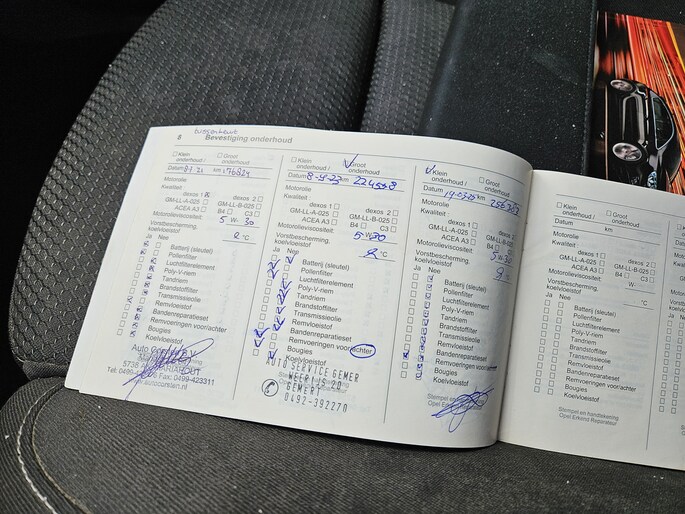 tussenbeurt
8 Bevestiging onderhoud
Klein onderhoud /
Groot onderhoud
Datum 8-1-21 km 176824
Motorolie
Kwaliteit
dexos 1
dexos 2
GM-LL-A-025
GM-LL-B-025
ACEA A3
B4
C3
Motorolieviscositeit
5 W 30
Vorstbescherming,
koelvloeistof
°C
Ja Nee
Batterij (sleutel)
Pollenfilter
Luchtfilterelement
Poly-V-riem
Tandriem
Brandstoffilter
Transmissieolie
Remvloeistof
Bandenreparatieset
Remvoeringen voor/achter
Bougies
Koelvloeistof
Klein onderhoud /
Groot onderhoud
Datum 8-9-23 km
Motorolie
Kwaliteit
dexos 1
dexos 2
GM-LL-A-025
GM-LL-B-025
ACEA A3
B4
C3
Motorolieviscositeit
5 W 30
Vorstbescherming,
koelvloeistof
°C
Ja Nee
Batterij (sleutel)
Pollenfilter
Luchtfilterelement
Poly-V-riem
Tandriem
Brandstoffilter
Transmissieolie
Remvloeistof
Bandenreparatieset
Remvoeringen voor/achter
Bougies
Koelvloeistof
AUTO SERVICE GEMER
GEMERT
0492-392270
Klein onderhoud /
Groot onderhoud
Datum km
Motorolie
Kwaliteit
dexos 1
dexos 2
GM-LL-A-025
GM-LL-B-025
ACEA A3
B4
C3
Motorolieviscositeit
5 W 30
Vorstbescherming,
koelvloeistof
°C
Ja Nee
Batterij (sleutel)
Pollenfilter
Luchtfilterelement
Poly-V-riem
Tandriem
Brandstoffilter
Transmissieolie
Remvloeistof
Bandenreparatieset
Remvoeringen voor/achter
Bougies
Koelvloeistof
Stempel en handtekening
Opel Erkend Reparateur
Klein onderhoud /
Groot onderhoud
Datum km
Motorolie
Kwaliteit
dexos 1
dexos 2
GM-LL-A-025
GM-LL-B-025
ACEA A3
B4
C3
Motorolieviscositeit
W
Vorstbescherming,
koelvloeistof
°C
Ja Nee
Batterij (sleutel)
Pollenfilter
Luchtfilterelement
Poly-V-riem
Tandriem
Brandstoffilter
Transmissieolie
Remvloeistof
Bandenreparatieset
Remvoeringen voor/achter
Bougies
Koelvloeistof
Stempel en handtekening
Opel Erkend Reparateur